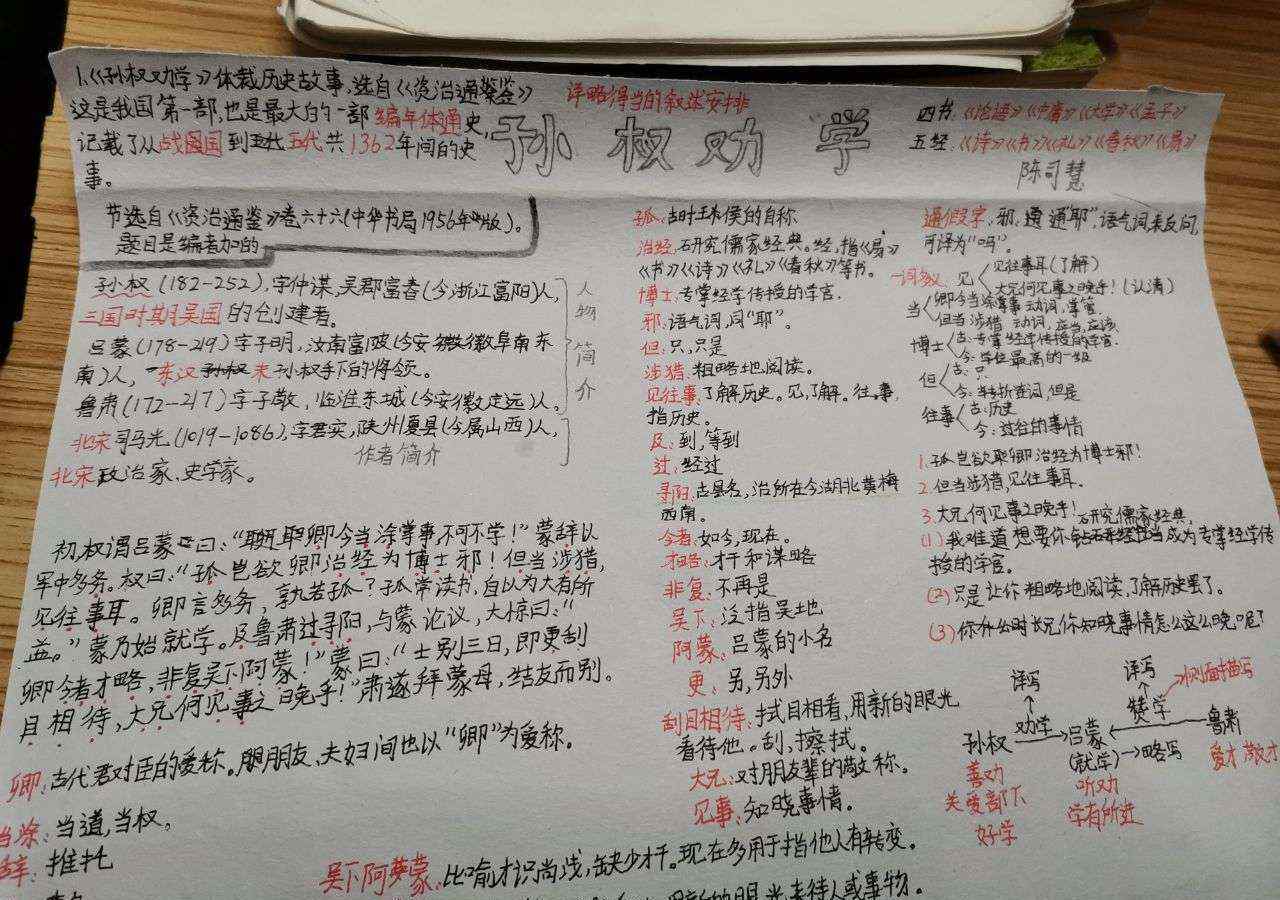 1.《孙权劝学》体裁历史故事,选自《资治通鉴》
这是我国第一部,也是最大的一部编年体通史,
记载了从战国到五代共1362年间的史
事。
详略得当的叙述安排
孙权劝学
四书:《论语》《中庸》《大学》《孟子》
五经:《诗》《书》《礼》《春秋》《易》
陈司慧
节选自《资治通鉴》卷六十六(中华书局1956年版)。
题目是编者加的
孙权(182-252),字仲谋,吴郡富春(今浙江富阳)人,
三国时期吴国的创建者。
吕蒙(178-219)字子明,汝南富陂(今安徽阜南东
南)人,东汉末孙权手下的将领。
鲁肃(172-217)字子敬,临淮东城(今安徽定远)人。
人物简介
北宋司马光(1019-1086),字君实,陕州夏县(今属山西)人,
北宋政治家、史学家。
作者简介
初,权谓吕蒙曰:“卿今当涂掌事不可不学!”蒙辞以
军中多务。权曰:“孤岂欲卿治经为博士邪!但当涉猎,
见往事耳。卿言多务,孰若孤?孤常读书,自以为大有所
益。”蒙乃始就学。及鲁肃过寻阳,与蒙论议,大惊曰:“
卿今者才略,非复吴下阿蒙!”蒙曰:“士别三日,即更刮
目相待,大兄何见事之晚乎!”肃遂拜蒙母,结友而别。
卿:古代君对臣的爱称。朋友、夫妇间也以“卿”为爱称。
当涂:当道,当权。
辞:推托
孤:古时王侯的自称
治经:研究儒家经典。经,指《易》
《书》《诗》《礼》《春秋》等书。
博士:专掌经学传授的学官.
邪:语气词,同“耶”。
但:只,只是
涉猎:粗略地阅读。
见往事:了解历史。见,了解。往事,
指历史。
及:到,等到
过:经过
寻阳:古县名,治所在今湖北黄梅
西南。
今者:如今,现在。
才略:才干和谋略
非复:不再是
吴下:泛指吴地
阿蒙:吕蒙的小名
更:另,另外
刮目相待:拭目相看,用新的眼光
看待他。刮,擦拭。
大兄:对朋友辈的敬称。
见事:知晓事情。
吴下阿蒙:比喻才识尚浅,缺少才干。现在多用于指他人有转变。
通假字:邪,通“耶”,语气词,表反问,
可译为“吗”。
一词多义
见 见往事耳(了解)
大兄何见事之晚乎!(认清)
当 卿今当涂掌事 动词,掌管
但当涉猎 动词,应当,应该
博士 古:专掌经学传授的学官.
今:学位最高的一级
但 古:只
今:转折连词,但是
往事 古:历史
今:过往的事情
1.孤岂欲卿治经为博士邪!
2.但当涉猎,见往事耳.
3.大兄何见事之晚乎!
(1)我难道想要你研究儒家经典当成为专掌经学传
授的学官。
(2)只是让你粗略地阅读,了解历史罢了。
(3)你知晓事情怎么这么晚呢?
详写 详写 侧面描写
劝学 赞学
孙权 吕蒙 鲁肃
(就学)→略写
善劝 听劝 爱才敬才
关爱部下 学有所进
好学